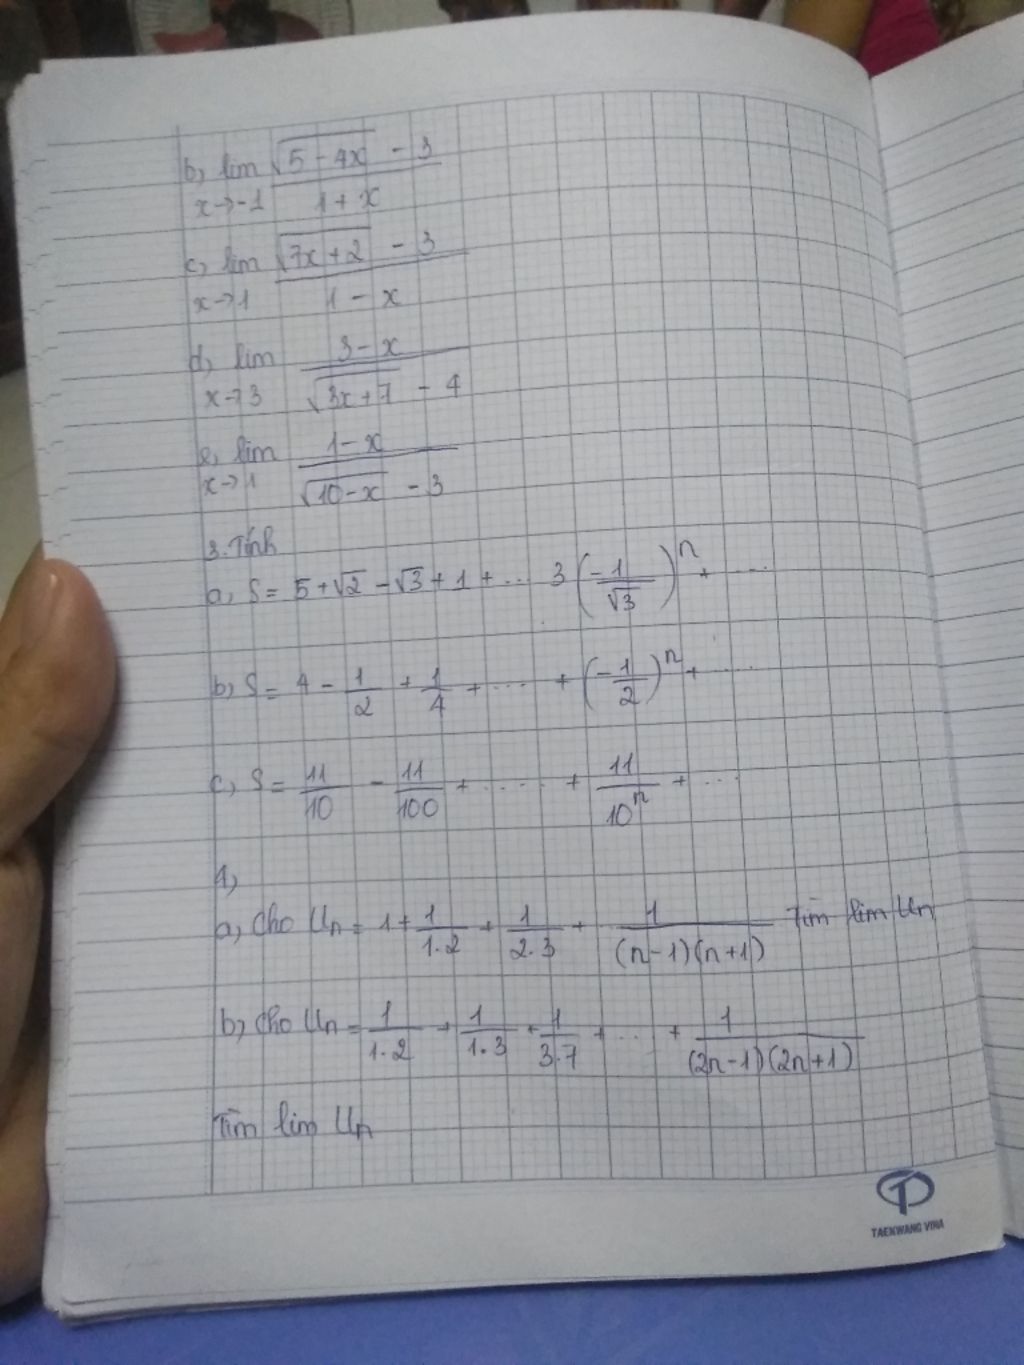 b, lim (√(5 - 4x) - 3) / (1 + x)
x→-1
c, lim (√(7x + 2) - 3) / (1 - x)
x→1
d, lim (3 - x) / (√(3x + 7) - 4)
x→3
e, lim (1 - x) / (√(10 - x) - 3)
x→1
3. Tính
a, S = 5 + √2 - √3 + 1 + ... 3 (-1/√3)^n + ...
b, S = 4 - 1/2 + 1/4 + ... + (-1/2)^n + ...
c, S = 11/10 - 11/100 + ... + 11/10^n + ...
4,
a, Cho Un = 1 + 1/1.2 + 1/2.3 + 1/(n-1)(n+1) Tìm lim Un
b, Cho Un = 1/1.2 + 1/1.3 + 1/3.7 + ... + 1/(2n-1)(2n+1)
Tìm lim Un
TAEKWANG VINA